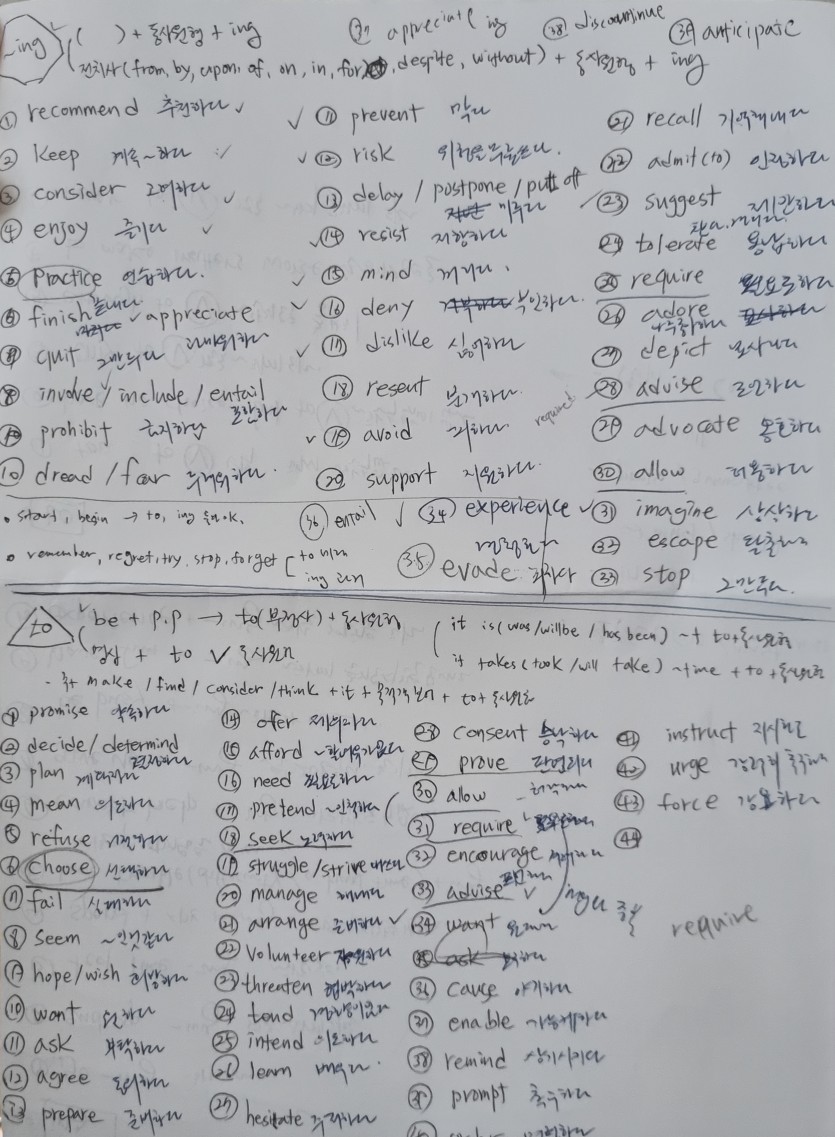 -ing ( ) + 동사원형 + ing
㊲ appreciate ing ㊳ discountinue ㊴ anticipate
전치사 (from, by, upon, of, on, in, for, despite, without) + 동사원형 + ing
① recommend 추천하다
② keep 계속~하다
③ consider 고려하다
④ enjoy 즐기다
⑤ Practice 연습하다.
⑥ finish 끝내다 appreciate
⑦ quit 그만두다
⑧ involve / include / entail 포함하다
⑨ prohibit 금지하다
⑩ dread / fear 두려워하다
⑪ prevent 막다
⑫ risk 위험을 무릅쓰다.
⑬ delay / postpone / putt off 미루다
⑭ resist 저항하다
⑮ mind 꺼리다.
⑯ deny 부인하다.
⑰ dislike 싫어하다
⑱ resent 분개하다.
⑲ avoid 피하다
⑳ support 지원하다.
㉑ recall 기억해내다
㉒ admit (to) 인정하다
㉓ suggest 제안하다
㉔ tolerate 용납하다
㉕ require 필요로하다
㉖ adore
㉗ depict 묘사하다
required
㉘ advise 조언하다
㉙ advocate 옹호하다
㉚ allow 허용하다
㉛ imagine 상상하다
㉜ escape 탈출하다
㉝ stop 그만두다.
㉞ experience 경험하다
㉟ evade 피하다
㊱ entail
• start, begin → to, ing 둘다 ok.
• remember, regret, try, stop, forget [ to 미래
ing 과거
to be + p.p → to(부정사) + 동사원형
명사 + to ∨ 동사원형
it is (was / will be / has been) ~ + to + 동사원형
it takes (took / will take) ~ time + to + 동사원형
make / find / consider / think + it + 목적격 보어 + to + 동사원형
① promise 약속하다
② decide / determind 결정하다
③ plan 계획하다
④ mean 의도하다
⑤ refuse 거절하다
⑥ choose 선택하다
⑦ fail 실패하다
⑧ seem ~인것같다
⑨ hope / wish 희망하다
⑩ want 원하다
⑪ ask 부탁하다
⑫ agree 동의하다
⑬ prepare 준비하다
⑭ offer 제의하다
⑮ afford ~할여유가있다
⑯ need 필요로하다
⑰ pretend ~인척하다
⑱ seek 노력하다
⑲ struggle / strive
⑳ manage
㉑ arrange 준비하다
㉒ volunteer 자원하다
㉓ threaten 협박하다
㉔ tend 경향이있다
㉕ intend 의도하다
㉖ learn 배우다
㉗ hesitate 주저하다
㉘ consent 승낙하다
㉙ prove 판명되다
㉚ allow 허락하다
㉛ require
㉜ encourage
㉝ advise
㉞ want 원하다
㉟ ask
㊱ cause 야기하다
㊲ enable 가능케하다
㊳ remind 상기시키다
㊴ prompt 촉구하다
㊶ instruct 지시하다
㊷ urge 강력히 촉구하다
㊸ force 강요하다
㊹
require